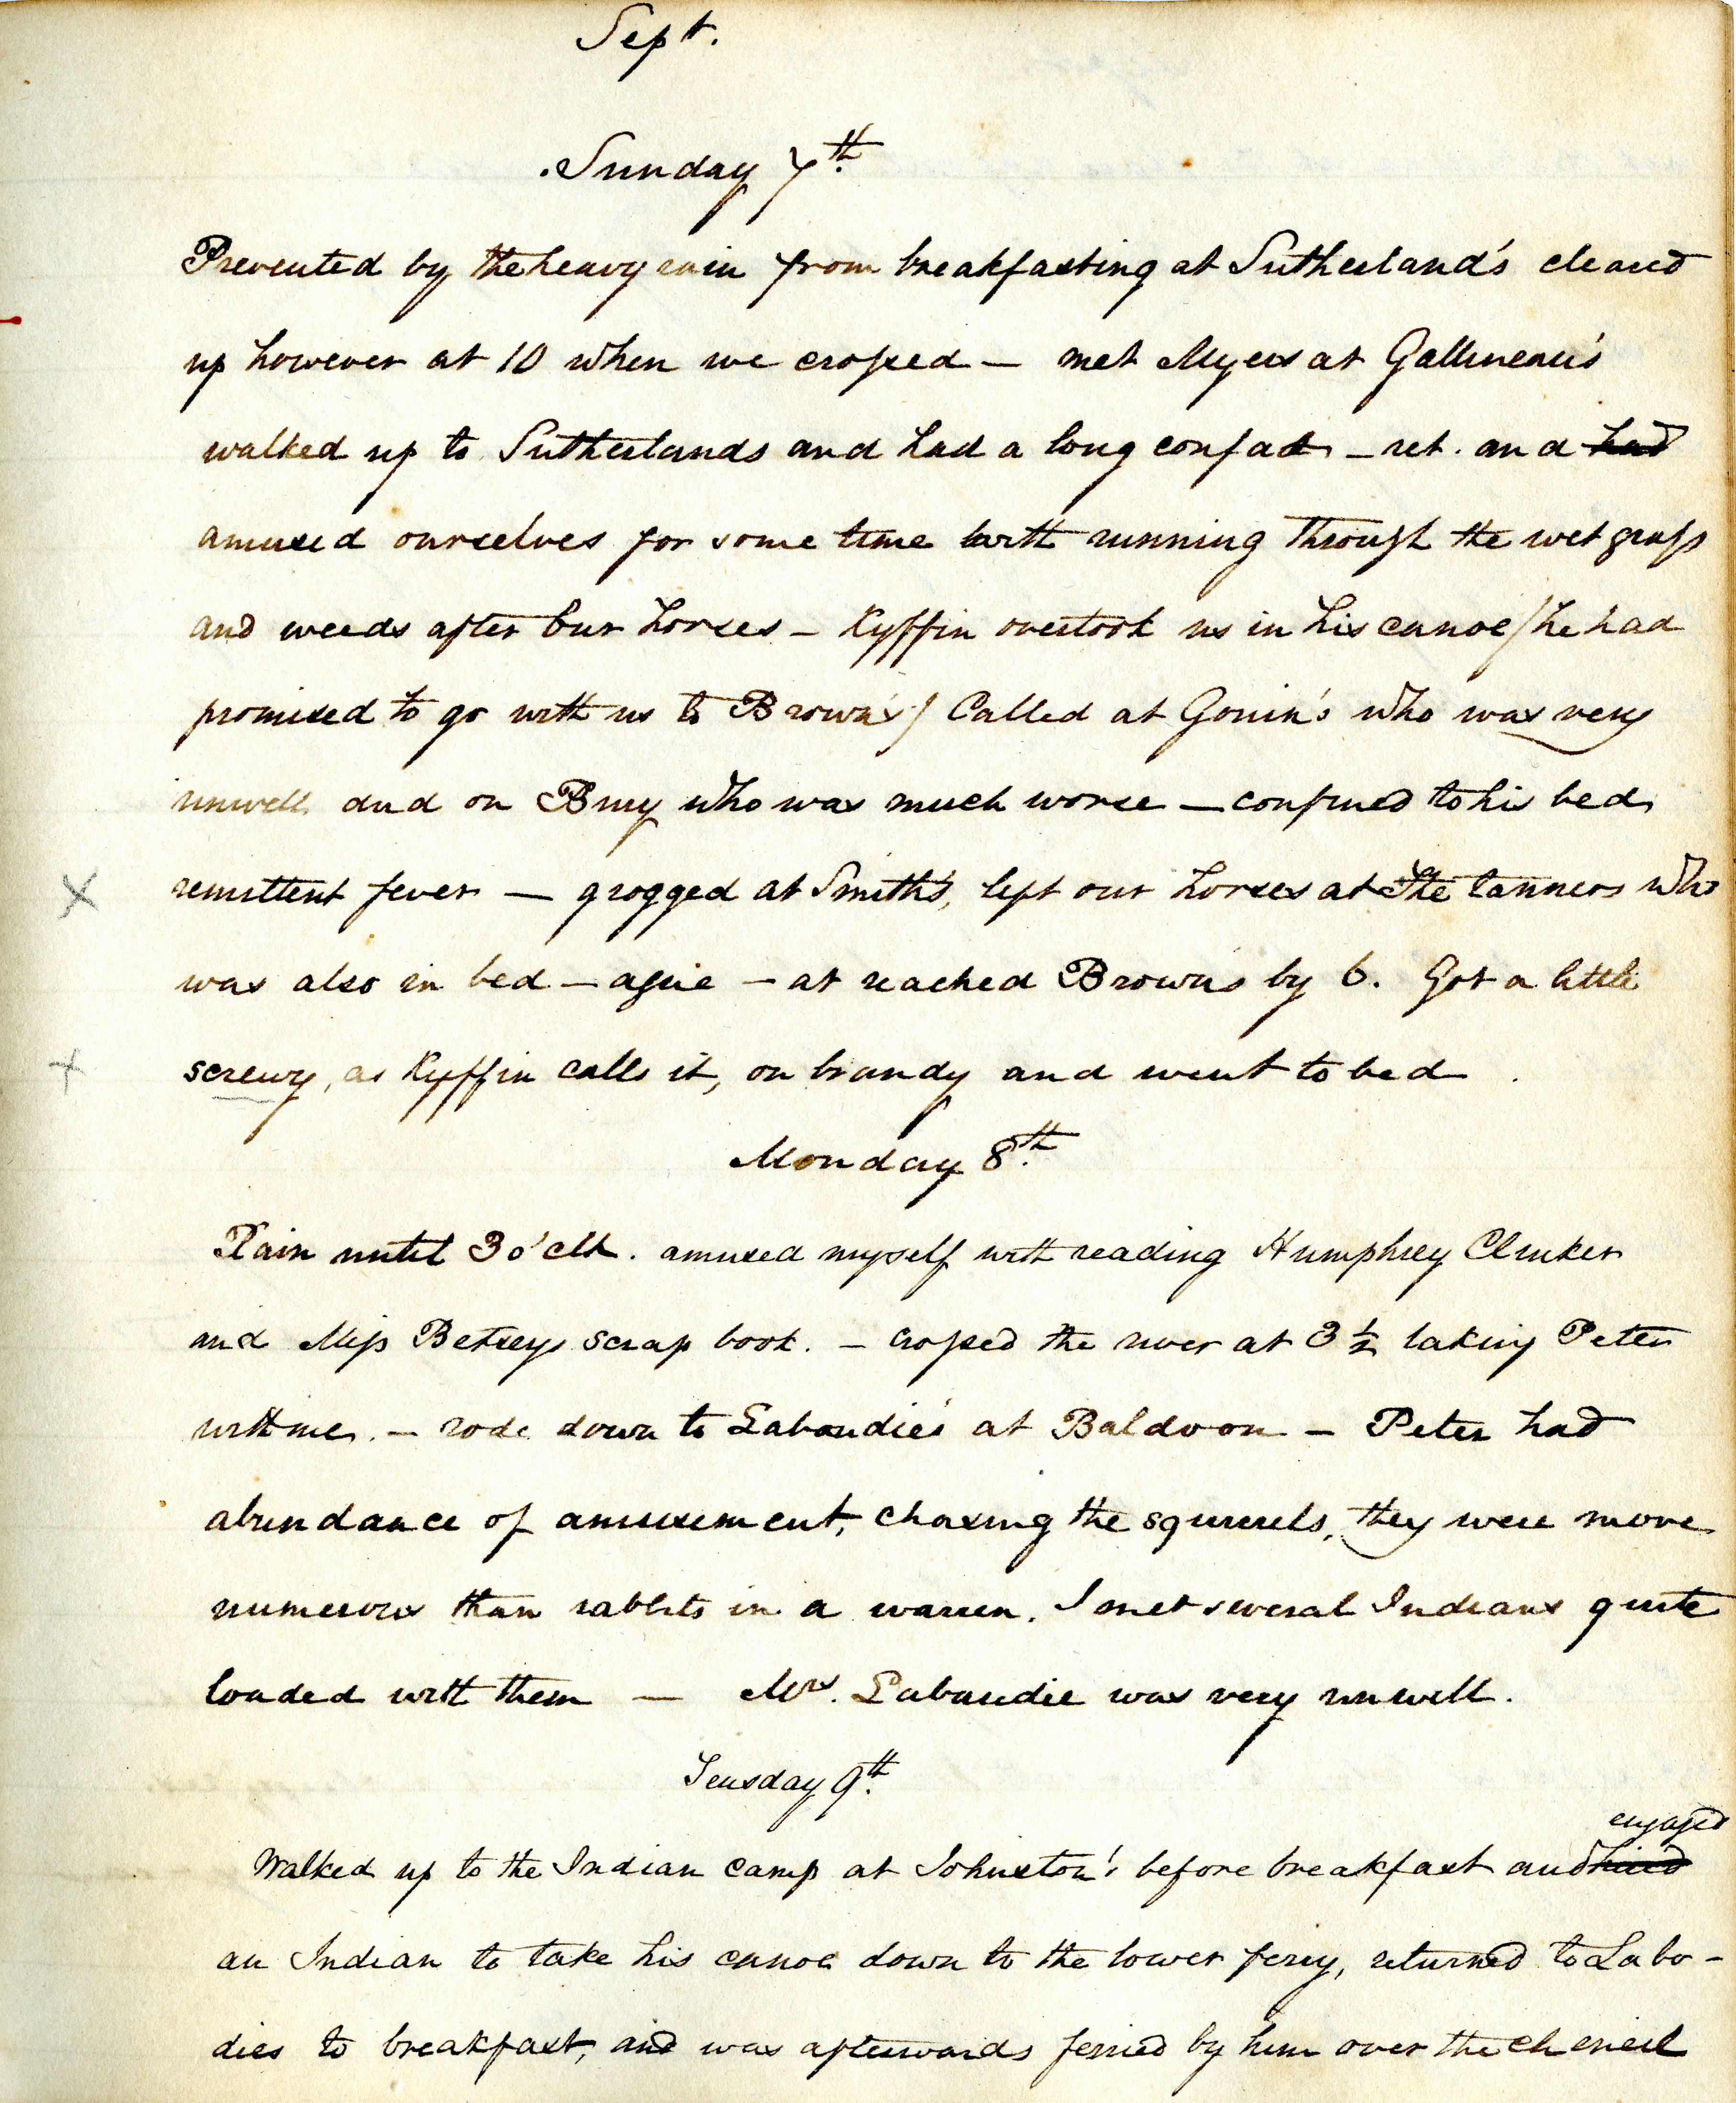 Sept.
Sunday 7th.
Prevented by the heavy rain from breakfasting at Sutherland's cleared
up however at 10 when we crossed — met Myers at Gallineau's
walked up to Sutherlands and had a long confab — ret. and had
amused ourselves for some time with running through the wet grass
and weeds after our horses — Kyffin overtook us in his canoe / he had
promised to go with us to Brown's / Called at Gonin's who was very
unwell and on Bury who was much worse — confined to his bed
remittent fever — grogged at Smith's, left our horses at the tanners who
was also in bed — ague — at reached Browns by 6. Got a little
screwy, as Kyffin calls it, on brandy and went to bed.
Monday 8th.
Rain until 3 o'clk. amused myself with reading Humphrey Clinker
and Miss Betseys scrap book. — crossed the river at 3 1/2 taking Peter
with me. — rode down to Labaudie's at Baldoon — Peter had
abundance of amusement, chasing the squirrels, they were more
numerous than rabbits in a warren. I met several Indians quite
loaded with them — Mrs. Labaudie was very unwell.
Teusday 9th.
engaged
Walked up to the Indian camp at Johnston's before breakfast and hired
an Indian to take his canoe down to the lower ferry, returned to Labo-
dies to breakfast, and was afterwards ferried by him over the cheneil